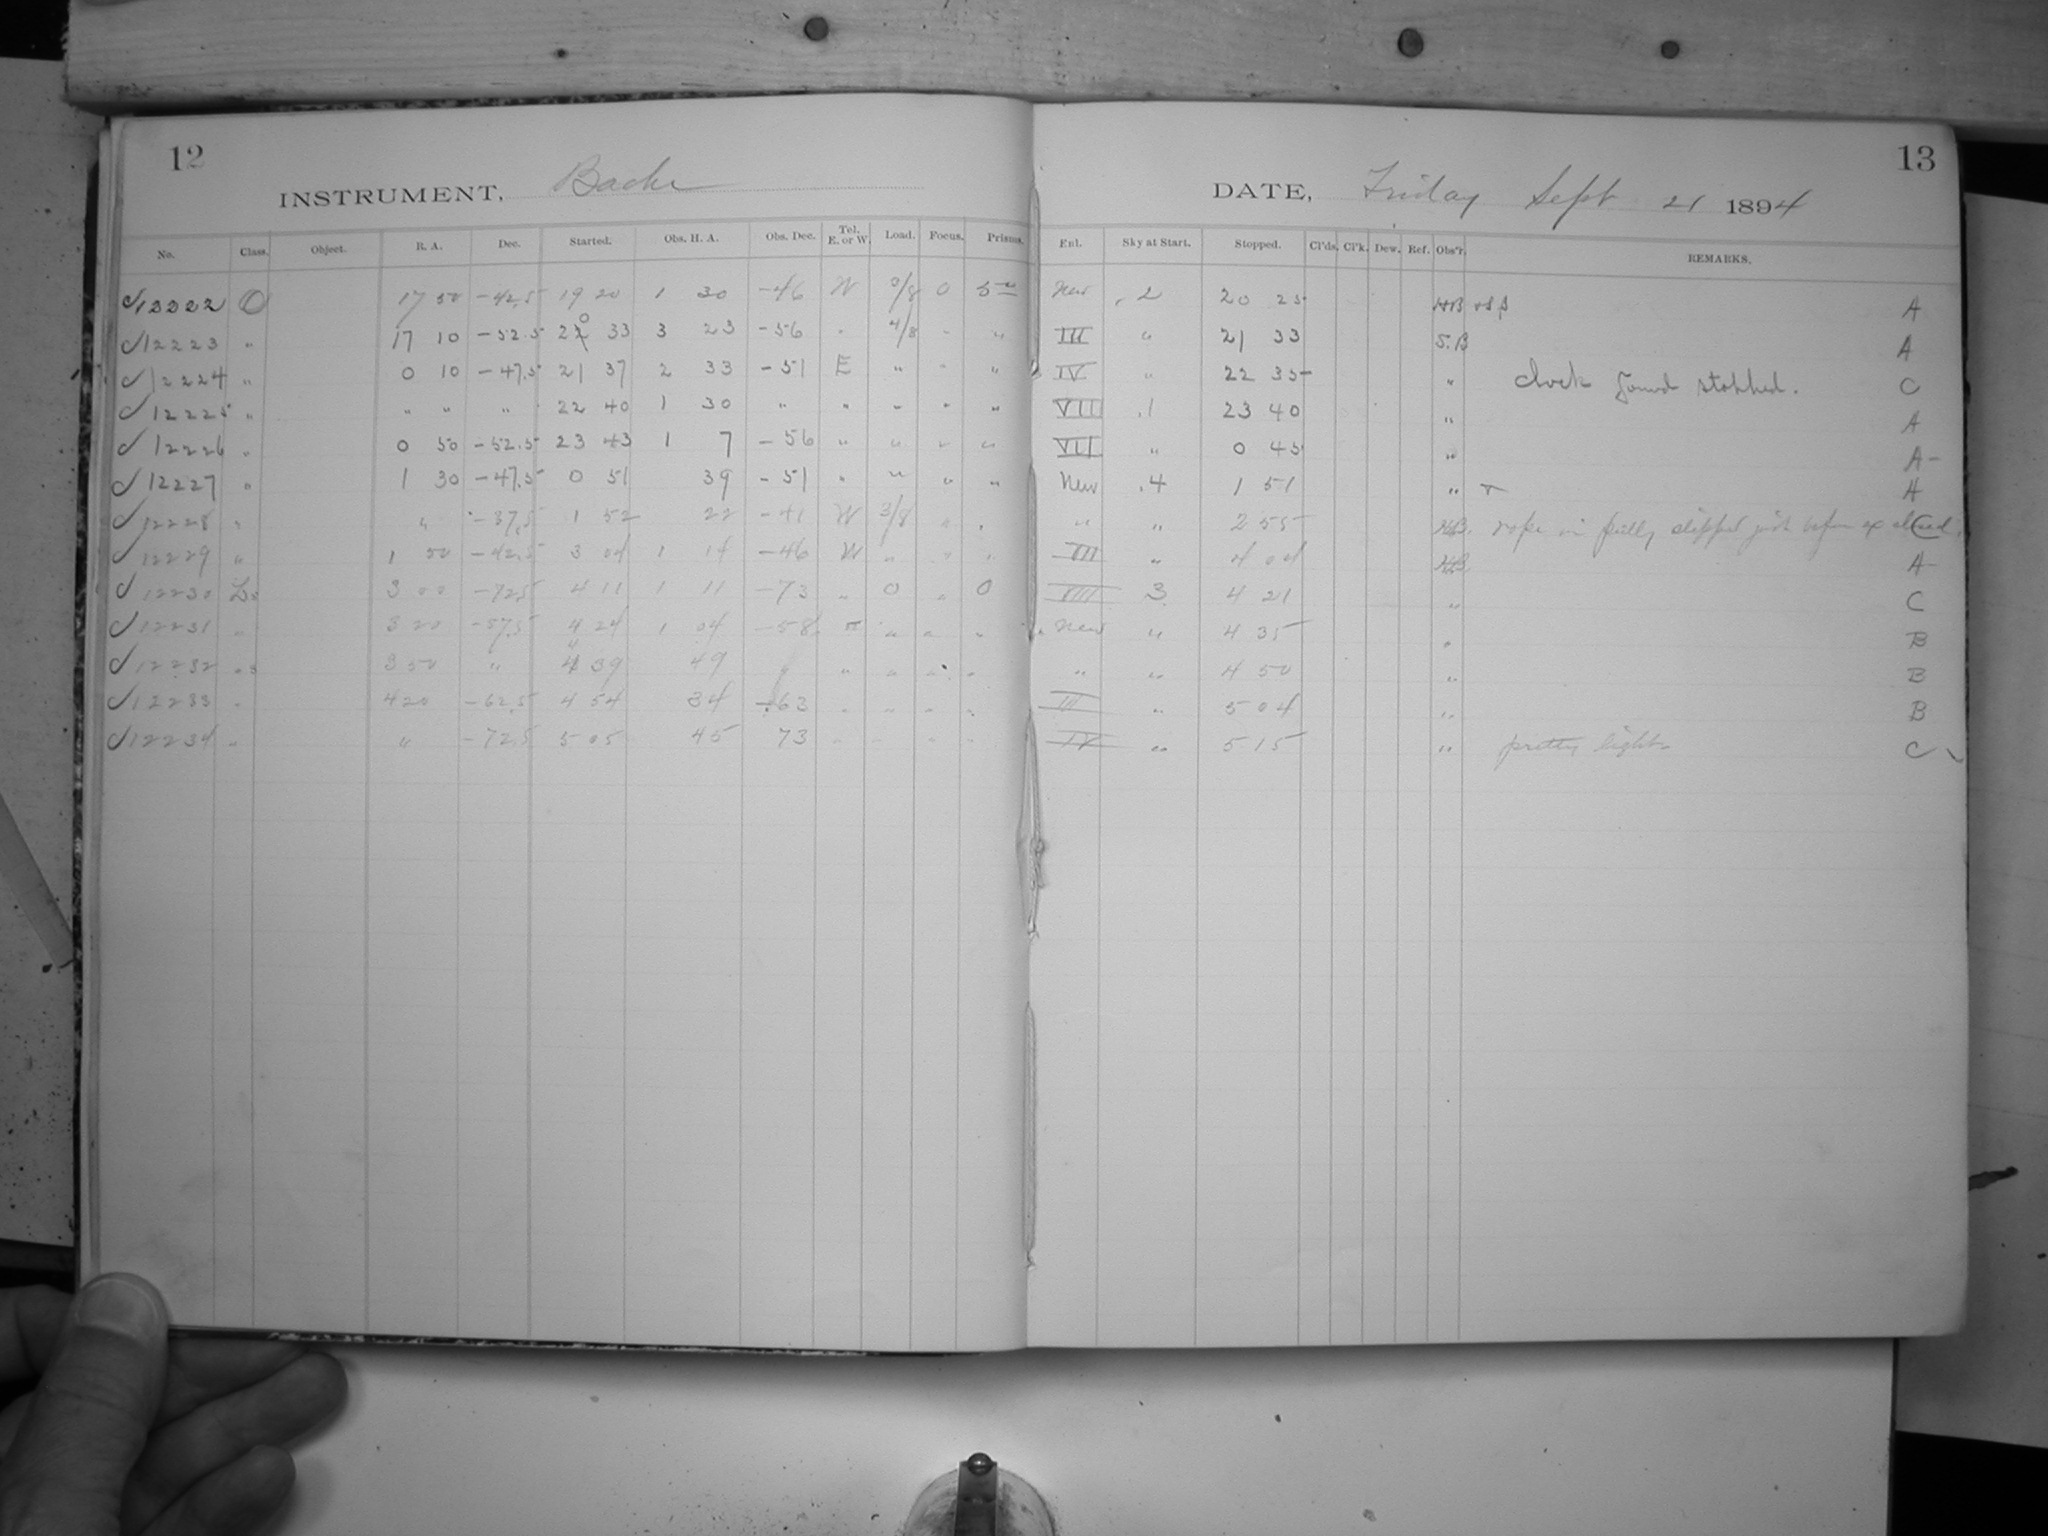 12
INSTRUMENT, Bache
No. Class. Object. R. A. Dec. Started. Obs. H. A. Obs. Dec. Tel. E. or W. Load. Focus. Prisms.
12222 O 17 50 -42.5 19 20 1 30 -46 W 3/8 0
12223 " 17 10 -52.5 20 33 3 23 -56 " 4/8 " "
12224 " 0 10 -47.5 21 37 2 33 -51 E " " "
12225 " " " " 22 40 1 30 " " " " "
12226 " 0 50 -52.5 23 43 1 7 -56 " " " "
12227 " 1 30 -47.5 0 51 39 -51 " " " "
12228 " " -37.5 1 52 22 -41 W 3/8 " "
12229 " 1 50 -42.5 3 04 1 14 -46 W " " "
12230 3 00 -72.5 4 11 1 11 -73 " 0 " 0
12231 " 3 20 -57.5 4 24 1 04 -58 " " " "
12232 " 3 50 " 4 39 49 " " " " "
12233 " 4 20 -62.5 4 54 34 -63 " " " "
12234 " " -72.5 5 05 45 73 " " " "
13
DATE, Friday Sept 21 1894
Enl. Sky at Start. Stopped. Cl'ds. Cl'k. Dew. Ref. Obs'r. REMARKS.
New .2 20 25 HB A
III " 21 33 S.B A
IV " 22 35 " clock found stopped. C
VIII .1 23 40 " A
VII " 0 45 " A-
New .4 1 51 " A
" " 2 55 HB. rope in pully slipped just before ex closed. C
VII " 4 04 HB. A-
VIII 3 4 21 " C
New " 4 35 " B
" " 4 50 " B
III " 5 04 " B
IV " 5 15 " pretty light. C